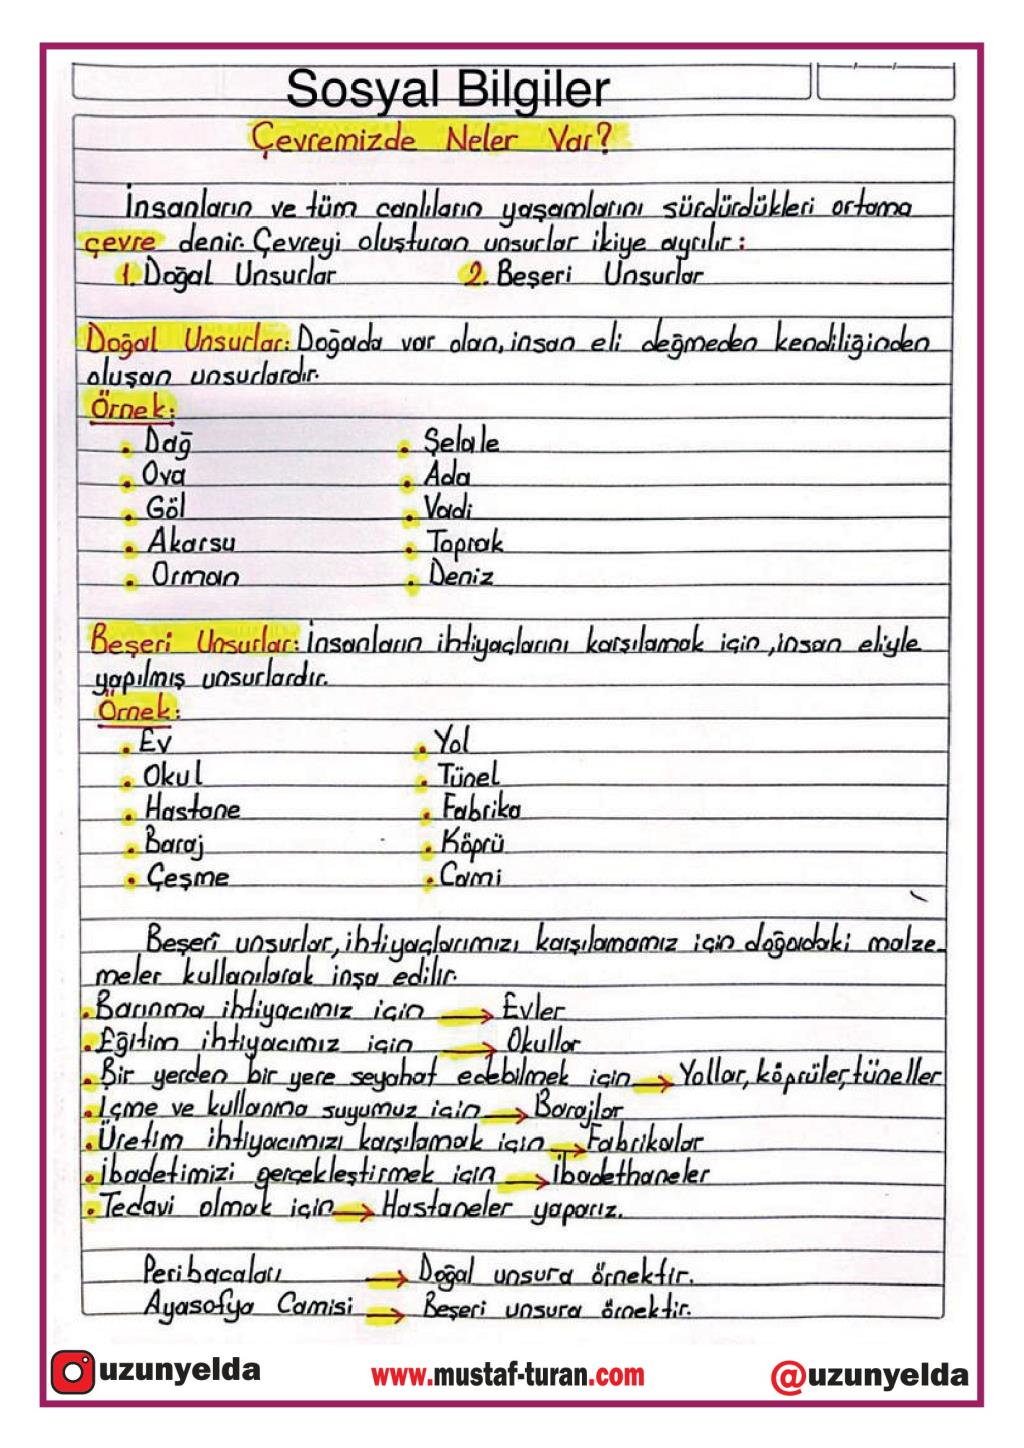 Sosyal Bilgiler
Çevremizde Neler Var?
İnsanların ve tüm canlıların yaşamlarını sürdürdükleri ortama
çevre denir. Çevreyi oluşturan unsurlar ikiye ayrılır:
1. Doğal Unsurlar 2. Beşeri Unsurlar
Doğal Unsurlar: Doğada var olan, insan eli değmeden kendiliğinden
oluşan unsurlardır.
Örnek:
• Dağ • Şelale
• Ova • Ada
• Göl • Vadi
• Akarsu • Toprak
• Orman • Deniz
Beşeri Unsurlar: İnsanların ihtiyaçlarını karşılamak için, insan eliyle
yapılmış unsurlardır.
Örnek:
• Ev • Yol
• Okul • Tünel
• Hastane • Fabrika
• Baraj • Köprü
• Çeşme • Cami
Beşerî unsurlar, ihtiyaçlarımızı karşılamamız için doğadaki malze-
meler kullanılarak inşa edilir.
• Barınma ihtiyacımız için → Evler
• Eğitim ihtiyacımız için → Okullar
• Bir yerden bir yere seyahat edebilmek için → Yollar, köprüler, tüneller
• İçme ve kullanma suyumuz için → Barajlar
• Üretim ihtiyacımızı karşılamak için → Fabrikalar
• İbadetimizi gerçekleştirmek için → İbadethaneler
• Tedavi olmak için → Hastaneler yaparız.
Peribacaları → Doğal unsura örnektir.
Ayasofya Camisi → Beşeri unsura örnektir.
uzunyelda www.mustaf-turan.com @uzunyelda